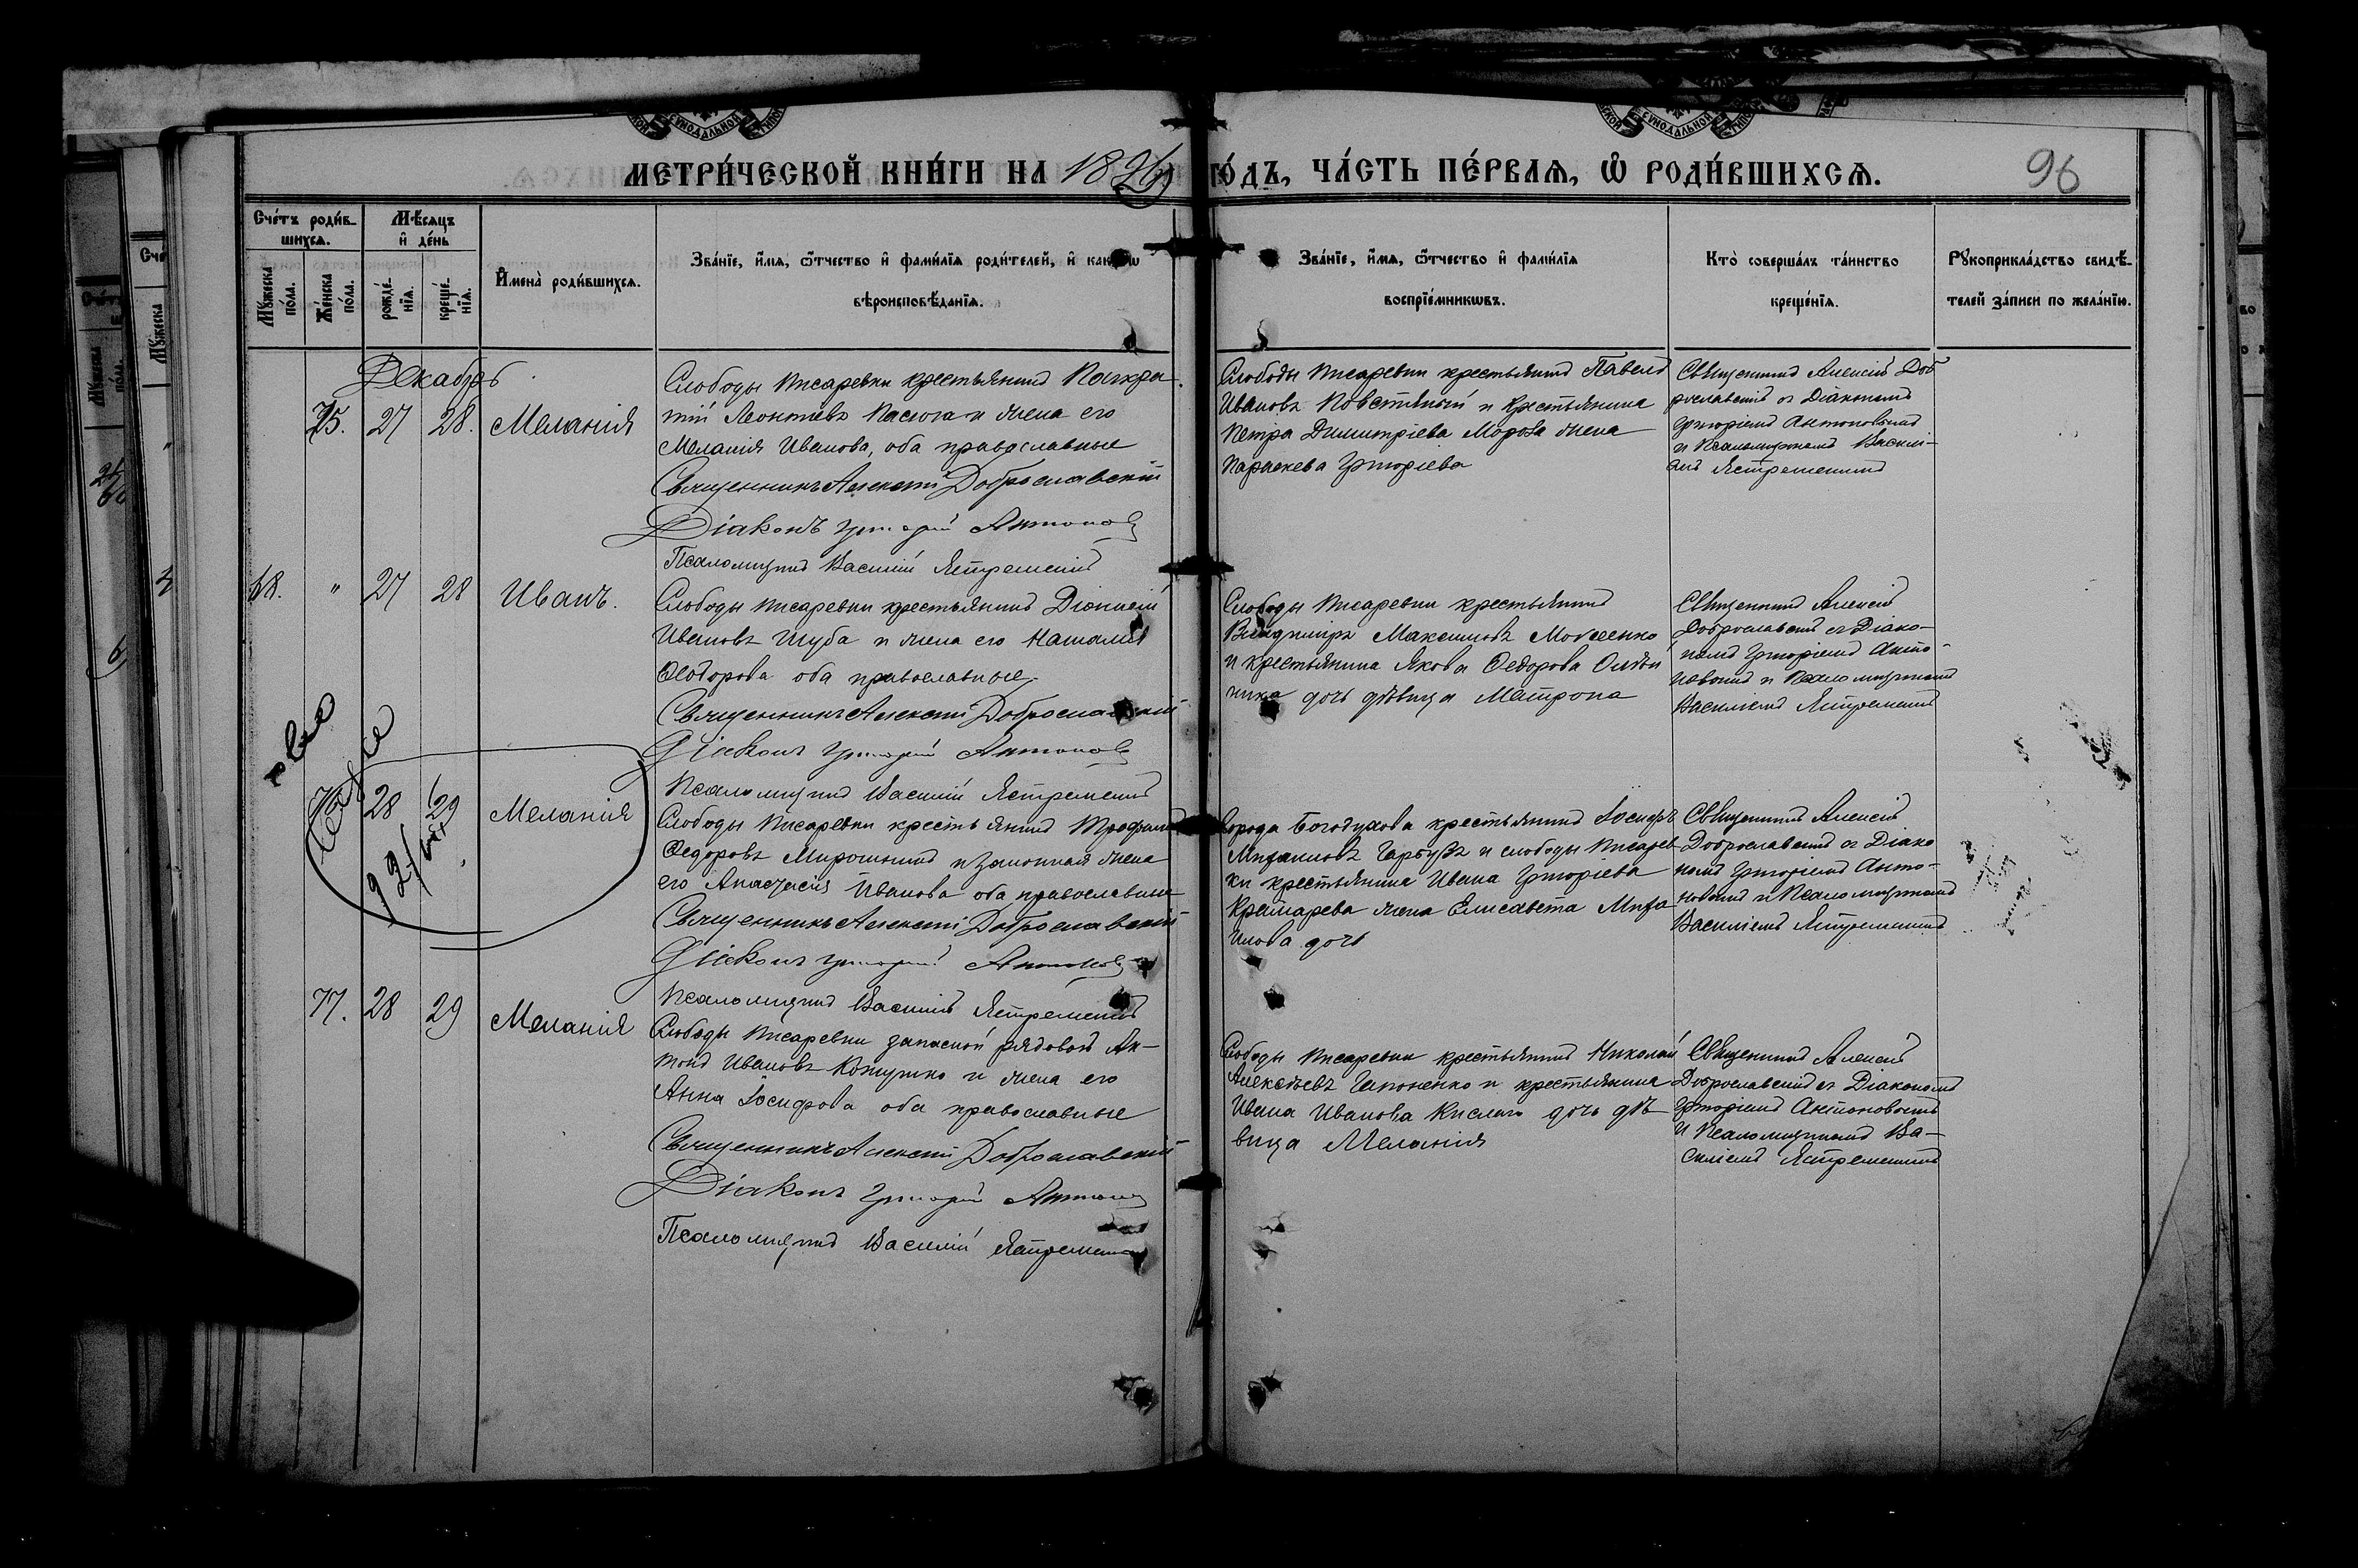 МЕТРИ́ЧЕСКОЙ КНИ́ГИ НА 1896 ГО́ДЪ, ЧА́СТЬ ПЕ́РВАѦ, Ѽ РОДИ́ВШИХСѦ.
96
Сче́тъ роди́вшихсѧ.
Мꙋ́жеска по́ла.
Же́нска по́ла.
Мѣ́сѧцъ и҆ де́нь
рожде́нїѧ.
креще́нїѧ.
И҆мена̀ роди́вшихсѧ.
Зва́нїе, и҆́мѧ, ѻ҆́тчество и҆ фами́лїѧ роди́телей, и҆ како́гѡ
вѣроисповѣ́данїѧ.
Зва́нїе, и҆́мѧ, ѻ҆́тчество и҆ фами́лїѧ
воспрїе́мникѡвъ.
Кто̀ соверша́лъ та́инство
креще́нїѧ.
Рꙋкоприкла́дство свидѣ́-
телей за́писи по жела́нїю.
Декабрь
75. 27 28. Меланія
Слободы Писаревки крестьянинъ Панкра-
тій Леонтіевъ Пасюга и жена его
Меланія Иванова, оба православные
Священникъ Алексій Доброславскій
Діаконъ Григорій Антоновъ
Псаломщикъ Василій Ястремскій
Слободы Писаревки крестьянинъ Павелъ
Ивановъ и крестьянина
Петра Димитріева Мороза жена
Параскева Григоріева
Священникъ Алексій Доб
рославскій съ Діакономъ
Григоріемъ Антоновымъ
и Псаломщикомъ Василі-
емъ Ястремскимъ
68. " 27 28 Иванъ.
Слободы Писаревки крестьянинъ Діонисій
Ивановъ Шуба и жена его Наталія
Ѳеодорова оба православные
Священникъ Алексій Доброславскій
Діаконъ Григорій Антоновъ
Псаломщикъ Василій Ястремскій
Слободы Писаревки крестьянинъ
Владиміръ Максимовъ
и крестьянина Якова Ѳедорова Олѣй
ника дочь дѣвица Матрона
Священникъ Алексій
Доброславскій съ Діако-
номъ Григоріемъ Анто-
новымъ и Псаломщикомъ
Василіемъ Ястремскимъ
76 28 29 Меланія
Слободы Писаревки крестьянинъ Трофимъ
Ѳедоровъ Мирошникъ и законная жена
его Анастасія Иванова оба православные
Священникъ Алексій Доброславскій
Діаконъ Григорій Антоновъ
Псаломщикъ Василій Ястремскій
Города Богодухова крестьянинъ Іосифъ
Михаиловъ Гарбузъ и слободы Писарев
ки крестьянина Ивана Григоріева
жена Елисавета Миха
илова дочь
Священникъ Алексій
Доброславскій съ Діако
номъ Григоріемъ Анто-
новымъ и Псаломщикомъ
Василіемъ Ястремскимъ
77. 28 29 Меланія
Слободы Писаревки запасной рядовой Ан-
тонъ Ивановъ и жена его
Анна Іосифова оба православные
Священникъ Алексій Доброславскій
Діаконъ Григорій Антоновъ
Псаломщикъ Василій Ястремскій
Слободы Писаревки крестьянинъ Николай
Алексѣевъ Гапоненко и крестьянина
Ивана Иванова Кислаго дочь дѣ-
вица Меланія
Священникъ Алексій
Доброславскій съ Діакономъ
Григоріемъ Антоновымъ
и Псаломщикомъ Ва-
силіемъ Ястремскимъ